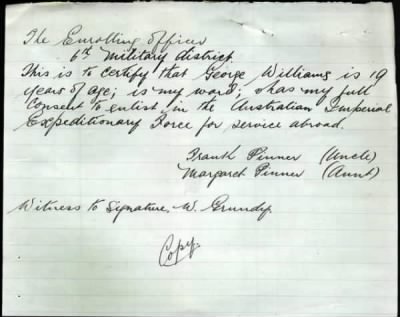 The Enrolling Officer
6th Military District.
This is to certify that George Williams is 19
years of age; is my ward; & has my full
Consent to enlist in the Australian Imperial
Expeditionary Force for service abroad.
Frank Pinner (Uncle)
Margaret Pinner (Aunt)
Witness to Signature, W. Grundy.
Copy.